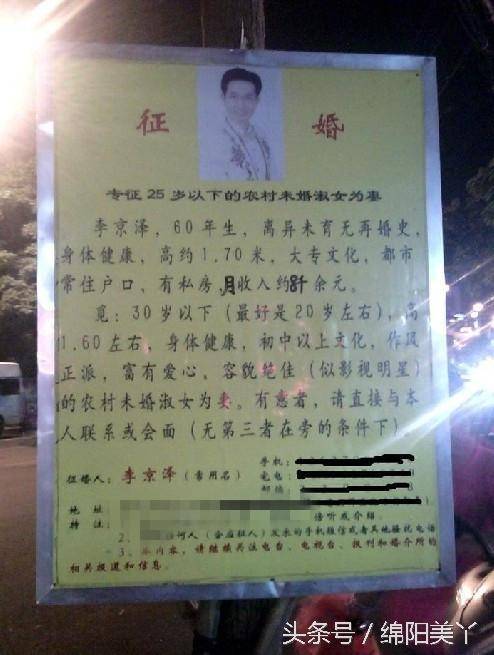 征 婚
专征25岁以下的农村未婚淑女为妻
李京泽，60年生，离异未育无再婚史，
身体健康，高约1.70米，大专文化，都市
常住户口，有私房，月收入约8千余元。
觅：30岁以下（最好是20岁左右），高
1.60左右，身体健康，初中以上文化，作风
正派，富有爱心，容貌绝佳（似影视明星）
的农村未婚淑女为妻。有意者，请直接与本
人联系或会面（无第三者在旁的条件下）。
手机：
征婚人：李京泽（常用名） 宅电：
邮编：
地 址：
特 注： 传听或介绍。
2、 何人 发来的手机短信或者其他骚扰电话
3、 内容，请继续关注电台、电视台、报刊和婚介所的
相关报道和信息。
头条号／绵阳美丫